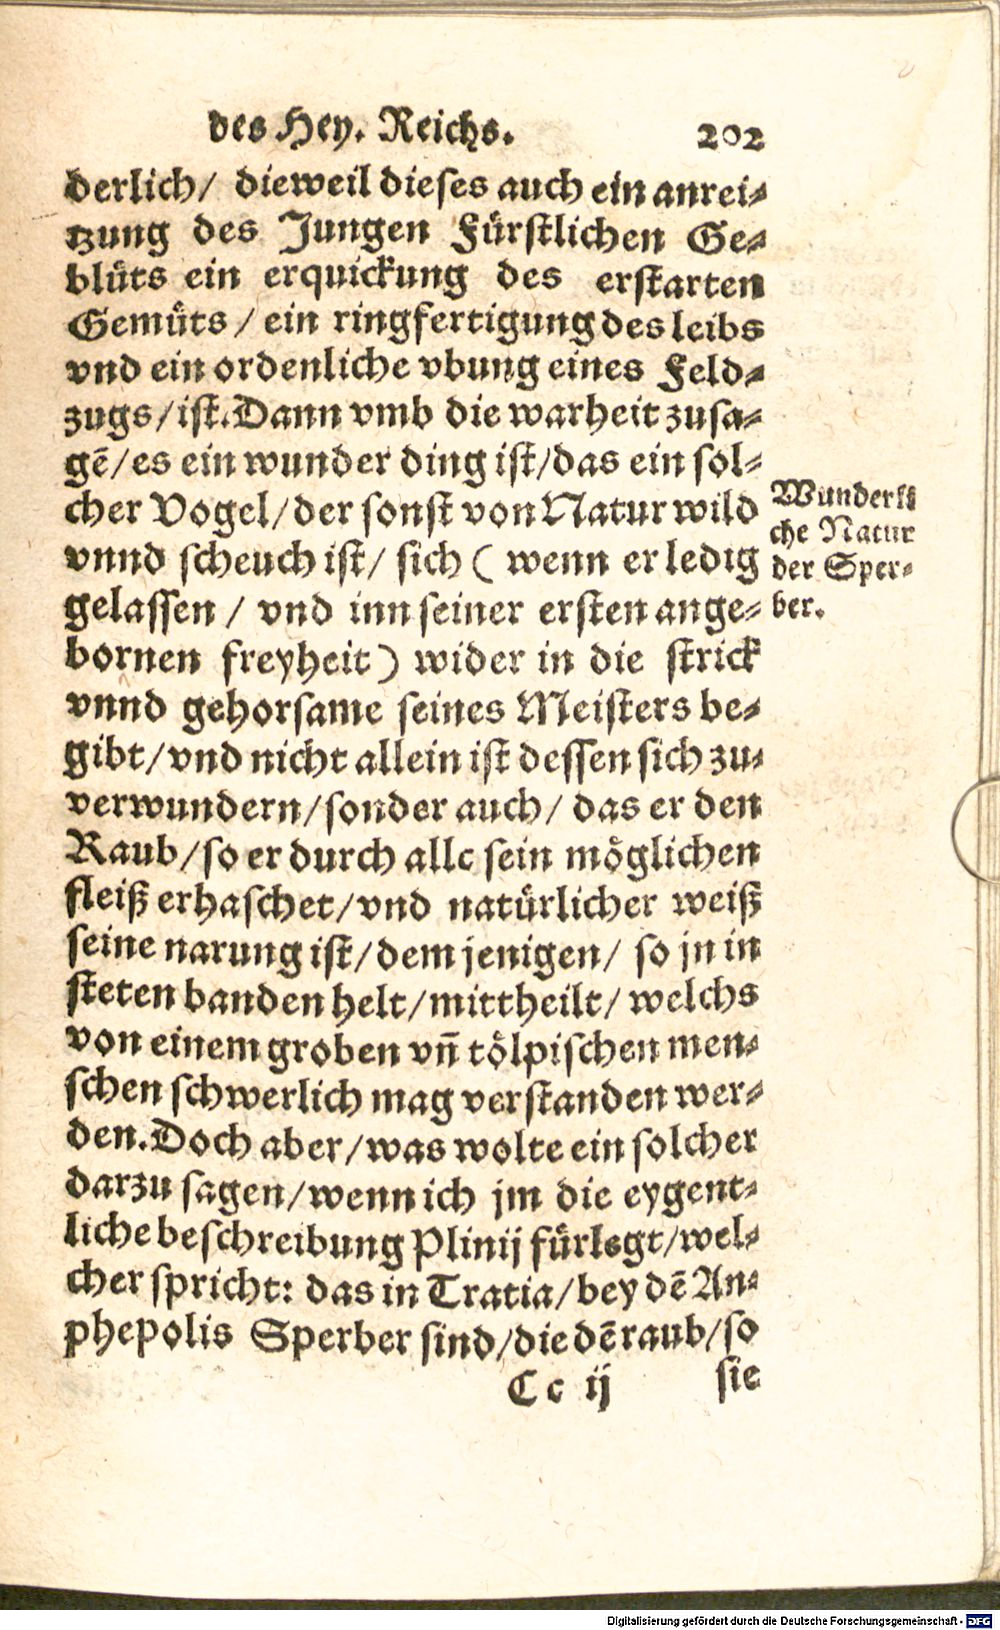 des Hey. Reichs. 202
derlich/ dieweil dieses auch ein anrei⸗
tzung des Jungen Fürstlichen Ge⸗
blüts ein erquickung des erstarten
Gemüts/ ein ringfertigung des leibs
vnd ein ordenliche vbung eines Feld⸗
zugs/ist. Dann vmb die warheit zusa⸗
gē/es ein wunder ding ist/das ein sol⸗
cher Vogel/der sonst von Natur wild
vnnd scheuch ist/ sich ( wenn er ledig
gelassen / vnd inn seiner ersten ange⸗
bornen freyheit) wider in die strick
vnnd gehorsame seines Meisters be⸗
gibt/vnd nicht allein ist dessen sich zu⸗
verwundern/sonder auch/ das er den
Raub/so er durch alle sein möglichen
fleiß erhaschet/vnd natürlicher weiß
seine narung ist/dem jenigen/ so jn in
steten banden helt/mittheilt/ welchs
von einem groben vñ tölpischen men⸗
schen schwerlich mag verstanden wer⸗
den. Doch aber/was wolte ein solcher
darzu sagen/wenn ich jm die eygent⸗
liche beschreibung Plinij fürlegt/wel⸗
cher spricht: das in Tratia/bey dē An⸗
phepolis Sperber sind/die dē raub/so
Cc ij sie
Wunderli
che Natur
der Sper⸗
ber.
Digitalisierung gefördert durch die Deutsche Forschungsgemeinschaft - DFG